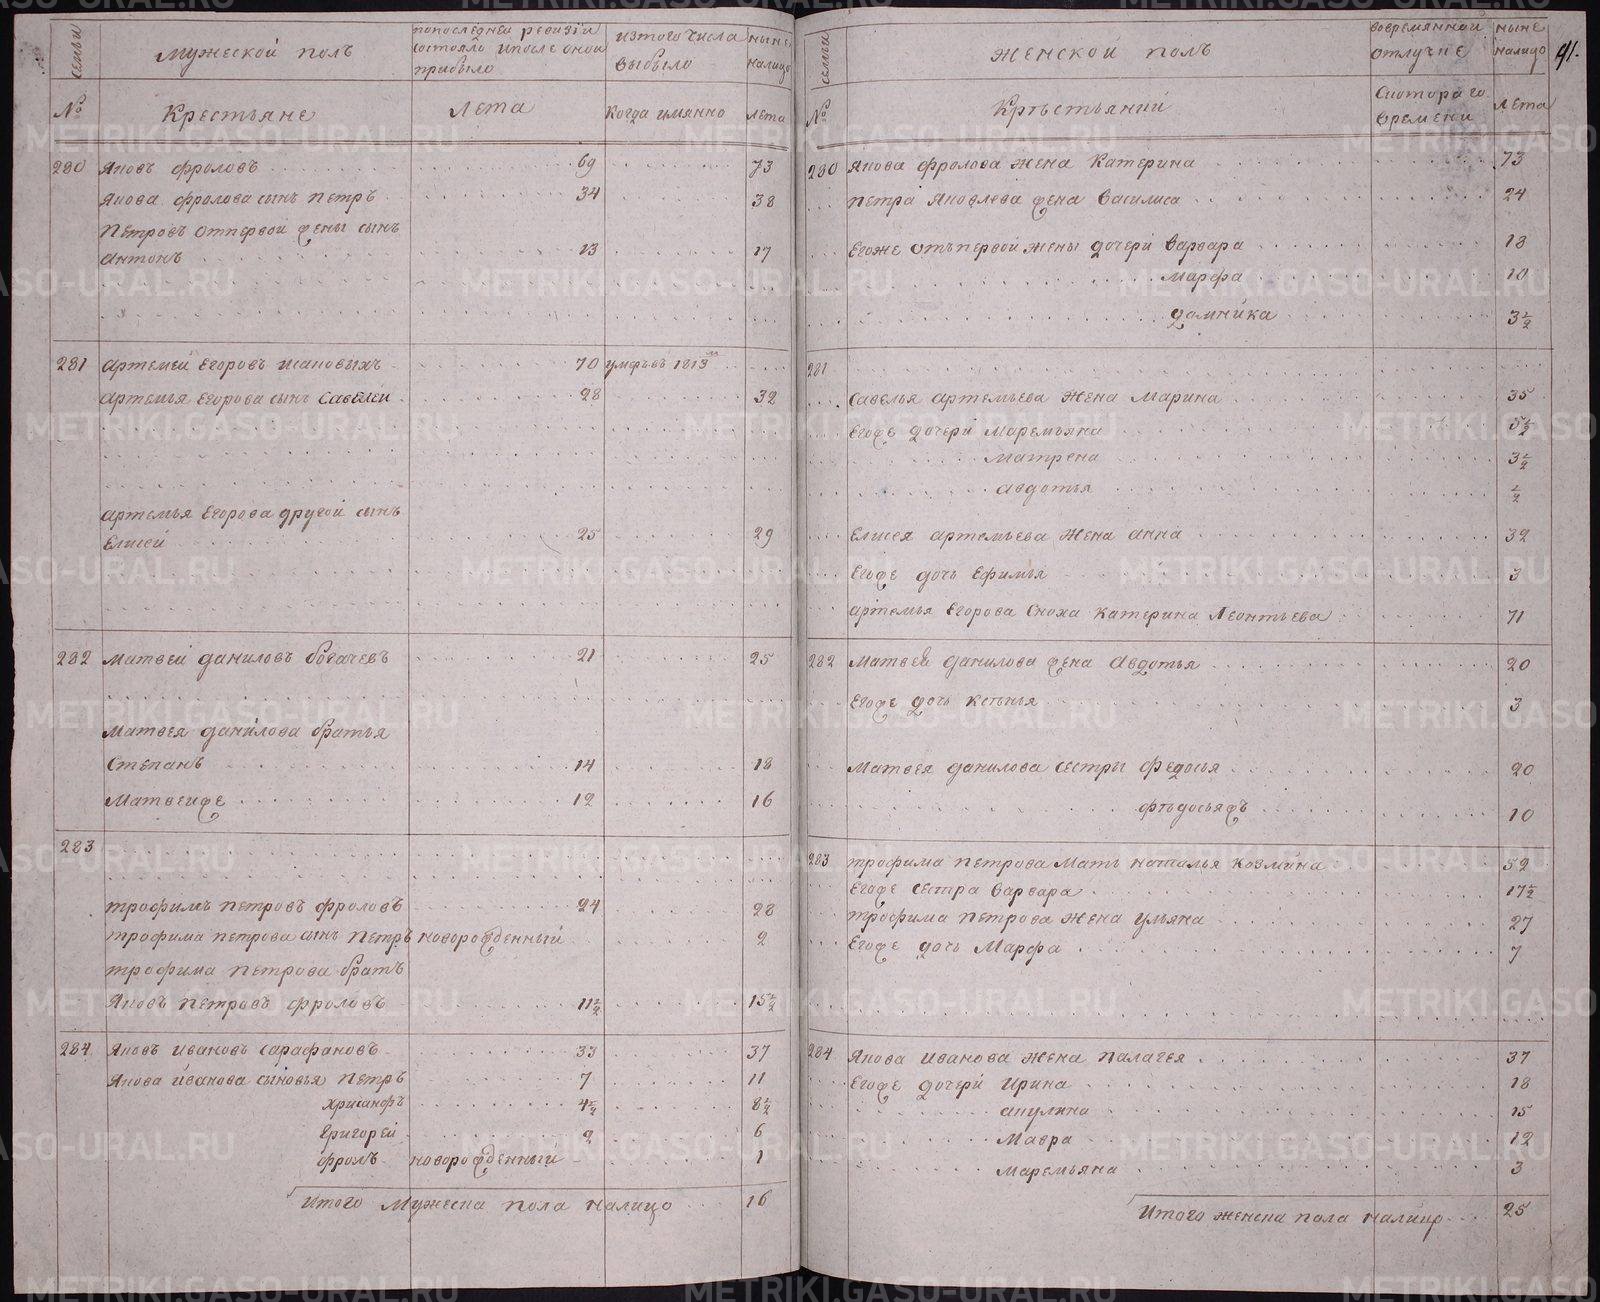 семьи
мужеской полъ
попоследней ревизiи
состояло ипосле оной
прибыло
изтого числа
выбыло
ныне
налицо
№
Крестьяне
лета
когда имянно
лета
280 Яковъ фроловъ 69 73
Якова фролова сынъ петръ 34 38
Петровъ отпервой жены сынъ
антонъ 13 17
281 артемей Егоровъ 70 умръвъ 1813
артемья Егорова сынъ Савелей 28 32
артемья Егорова другой сынъ
Елисей 25 29
282 матвей даниловъ богачевъ 21 25
матвея данилова братья
Степанъ 14 18
Матвейже 12 16
283
трофимъ петровъ фроловъ 24 28
трофима петрова сынъ Петръ новорожденный 2
трофима петрова братъ
Яковъ петровъ фроловъ 11½ 15½
284 Яковъ ивановъ сарафановъ 33 37
Якова иванова сыновья петръ 7 11
хрисанфъ 4½ 8½
Григорей 2 6
фролъ новорожденный 1
Итого мужеска пола налицо 16
семьи
женской полъ
вовременной
отлучке
ныне
налицо
91.
№
Крестьянки
Скотораго
времени
лета
280 Якова фролова жена Катерина 73
петра Яковлева жена василиса 24
Егоже отъпервой жены дочери варвара 18
марфа 10
домника 3½
281
савелья артемьева жена марина 35
Егоже дочери маремьяна 5½
матрена 3½
авдотья ½
Елисея артемьева жена анна 32
Егоже дочь Ефимья 3
артемья Егорова сноха катерина леонтьева 71
282 матвея данилова жена авдотья 20
Егоже дочь ксенья 3
матвея данилова сестры федосья 20
федосьяжъ 10
283 трофима петрова мать наталья козмина 52
Егоже сестра варвара 17½
трофима петрова жена ульяна 27
Егоже дочь марфа 7
284 Якова иванова жена палагея 37
Егоже дочери ирина 18
акулина 15
мавра 12
маремьяна 3
Итого женска пола налицо 25
METRIKI.GASO-URAL.RU